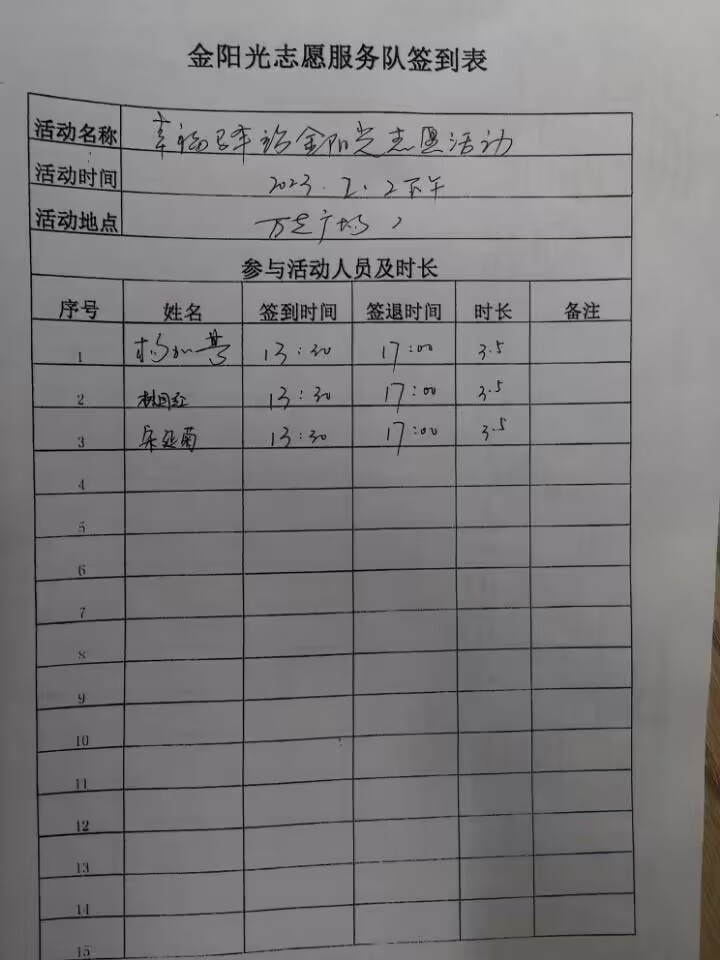 金阳光志愿服务队签到表
活动名称 幸福驿站金阳光志愿活动
活动时间 2023.2.2下午
活动地点 万达广场
参与活动人员及时长
序号 姓名 签到时间 签退时间 时长 备注
1 13:30 17:00 3.5
2 13:30 17:00 3.5
3 13:30 17:00 3.5
4
5
6
7
8
9
10
11
12
13
14
15